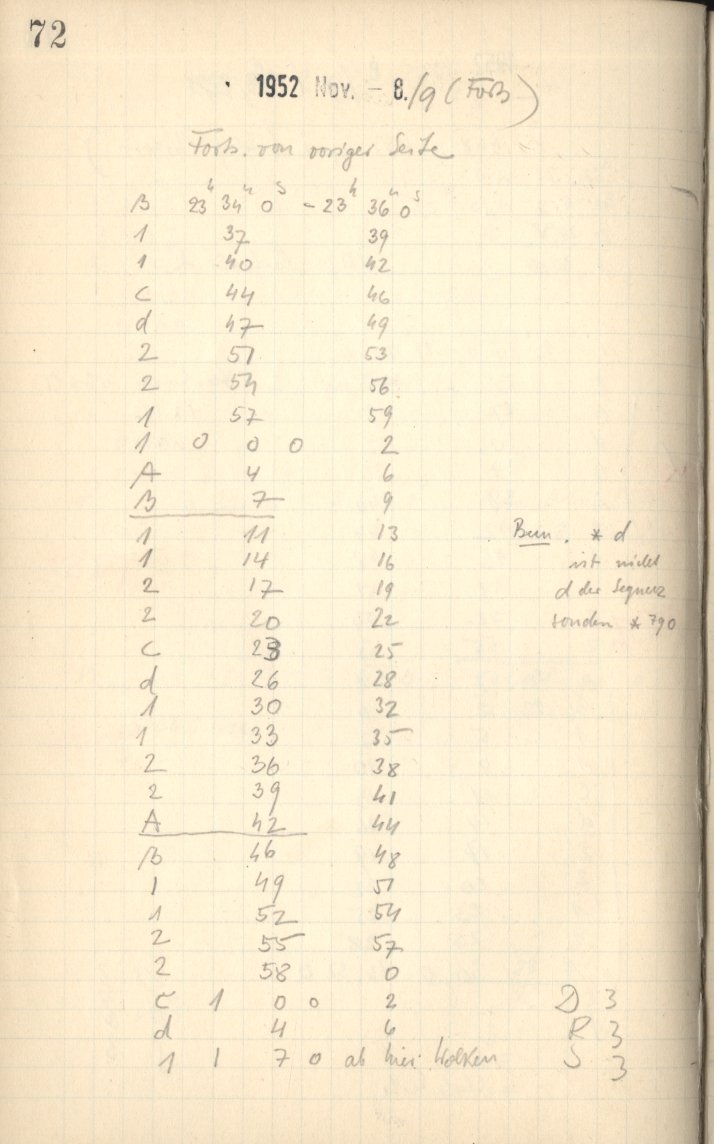 72
1952 Nov. - 8./9 (Forts)
Forts. von voriger Seite
B 23h 34m 0s - 23h 36m 0s
1 37 39
1 40 42
C 44 46
d 47 49
2 51 53
2 54 56
1 57 59
1 0 0 0 2
A 4 6
B 7 9
1 11 13
1 14 16
2 17 19
2 20 22
C 23 25
d 26 28
1 30 32
1 33 35
2 36 38
2 39 41
A 42 44
B 46 48
1 49 51
1 52 54
2 55 57
2 58 0
C 1 0 0 2
d 4 6
1 1 7 0 ab hier Wolken
Bem. * d
ist nicht
d der Sequenz
sondern * 790
D 3
R 3
S 3